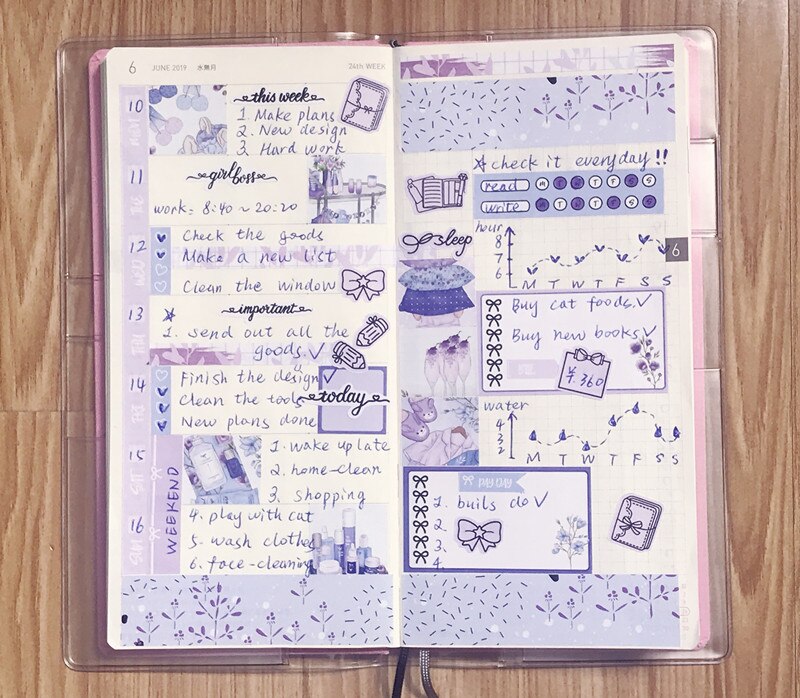 6 JUNE 2019 水無月
24th WEEK
10 MON
this week
1. Make plans
2. New design
3. Hard work
11 TUE
girl boss
work: 8:40 ~ 20:20
12 WED
Check the goods
Make a new list
Clean the window
13 THU
important
1. send out all the
goods. ✓
14 FRI
Finish the design ✓
Clean the tools
today
New plans done
15 SAT
WEEKEND
1. wake up late
2. home-clean
3. shopping
16 SUN
4. play with cat
5. wash clothes
6. face-cleaning
☆ check it everyday!!
read M T W T F S S
write M T W T F S S
sleep
hour
8
7
6
M T W T F S S
6
Buy cat foods. ✓
Buy new books ✓
¥.360
water
4
3
2
M T W T F S S
PAY DAY
1. buils do ✓
2.
3.
4.